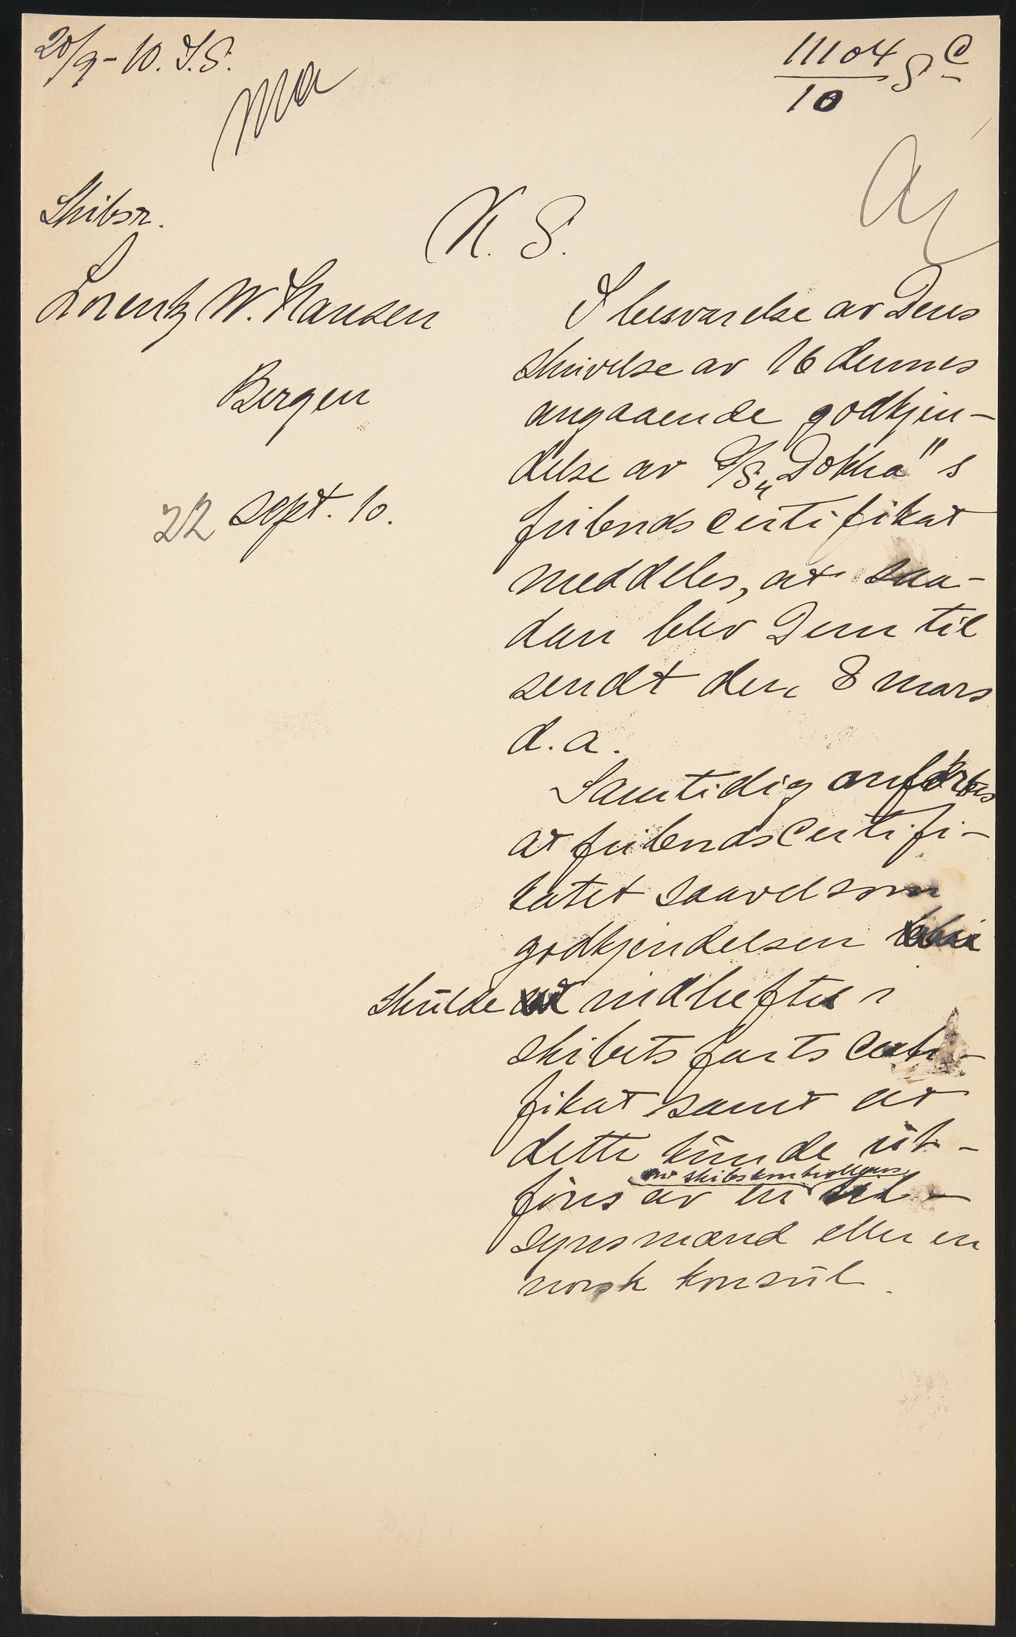 20/9-10. T.S.
11104/10 S C
Skibsr.
K. S.
Lorentz W. Hansen
Bergen
22 sept. 10.
I besvarelse av Deres
skrivelse av 16 dennes
angaaende godkjen-
delse av D/S „Dokka"s
fribordscertifikat
meddeles, at saa-
dan blev Dem til
sendt den 8 mars
d.a.
Samtidig anførtes
at fribordscertifi-
katet saavelsom
godkjendelsen
skulde indheftes i
skibets fartscerti-
fikat samt at
dette kunde ut-
av skibskontrollens
føres av en
synsmænd eller en
norsk konsul.